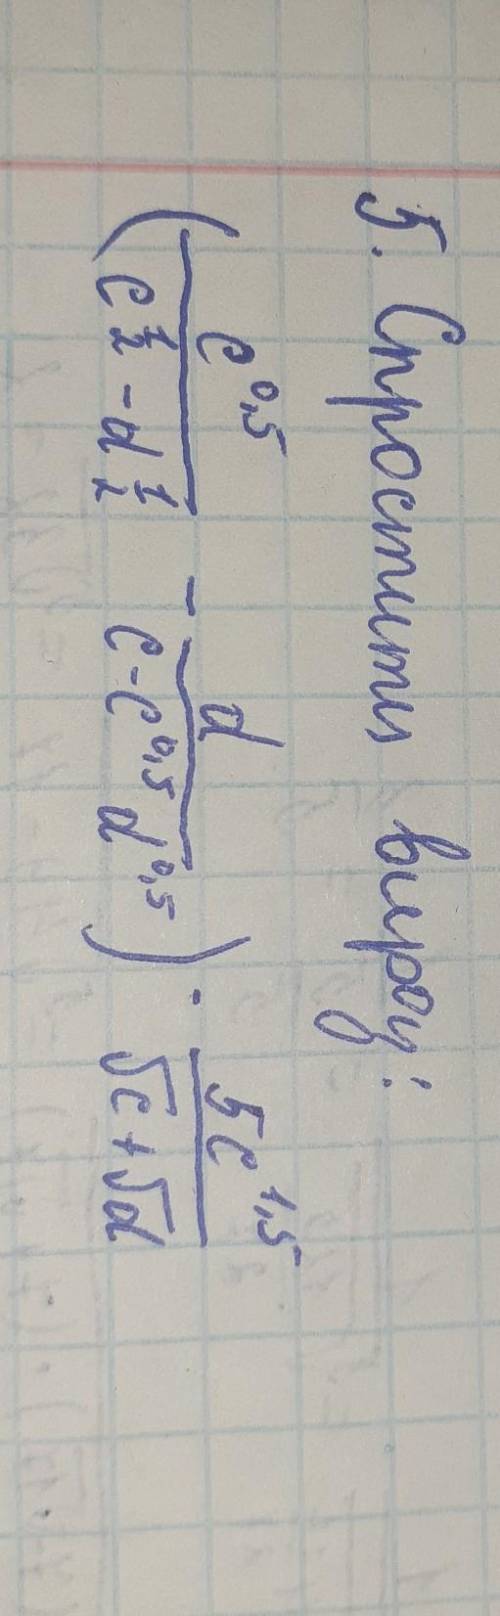 5. Спростити вираз:
(c^0,5 / (c^½ - d^½) - d / (c - c^0,5 d^0,5)) · 5c^1,5 / (√c + √d)